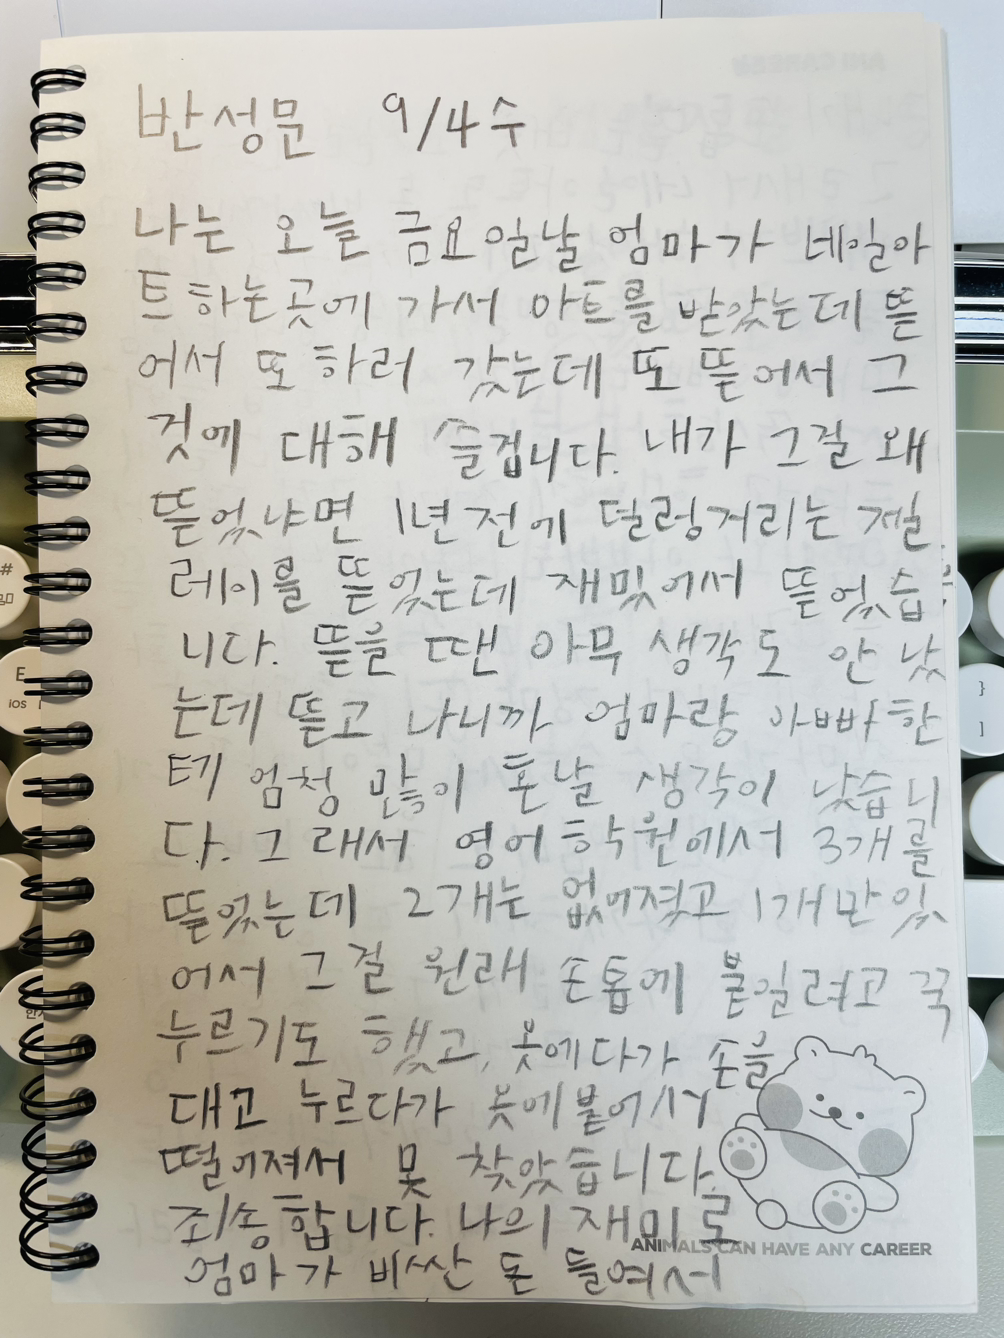 반성문 9/4수
나는 오늘 금요일날 엄마가 네일아
트하는곳에 가서 아트를 받았는데 뜯
어서 또 하러 갔는데 또 뜯어서 그
것에 대해 슬겁니다. 내가 그걸 왜
뜯었냐면 1년전에 덜렁거리는 젤
레이를 뜯었는데 재밌어서 뜯었습
니다. 뜯을 땐 아무 생각도 안 났
는데 뜯고 나니까 엄마랑 아빠한
테 엄청 많이 혼날 생각이 났습니
다. 그래서 영어학원에서 3개를
뜯었는데 2개는 없어졌고 1개만 있
어서 그걸 원래 손톱에 붙일려고 꾹
누르기도 했고, 옷에다가 손을
대고 누르다가 옷에붙어서
떨어져서 못 찾았습니다.
죄송합니다. 나의 재미로
엄마가 비싼 돈 들여서
ANIMALS CAN HAVE ANY CAREER
E
ios
#
}
]